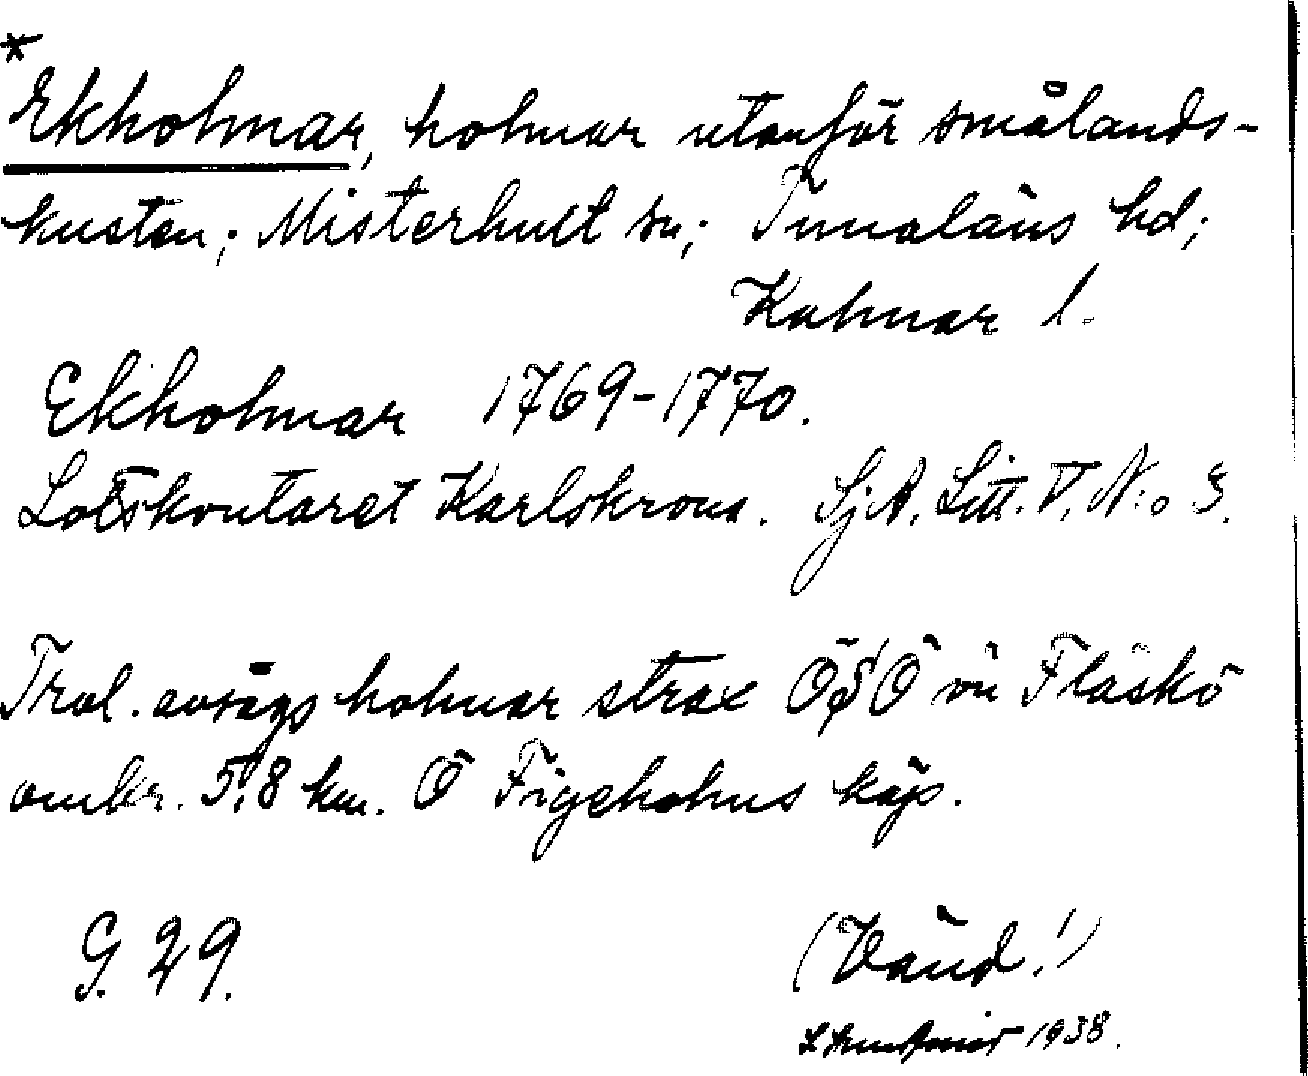 *
Ekholmar, holmar utanför smålands-
kusten; Misterhult sn; Tunaläns hd;
Kalmar l.
Ekholmar 1769-1770.
Lotskontoret Karlskrona. SjA. Litt. V, N:o 3.
Trol. avsågs holmar strax ÖSÖ om Fläskö
omkr. 5,8 km. Ö Figeholms köp.
G. 29.
(Vänd!)
1938.